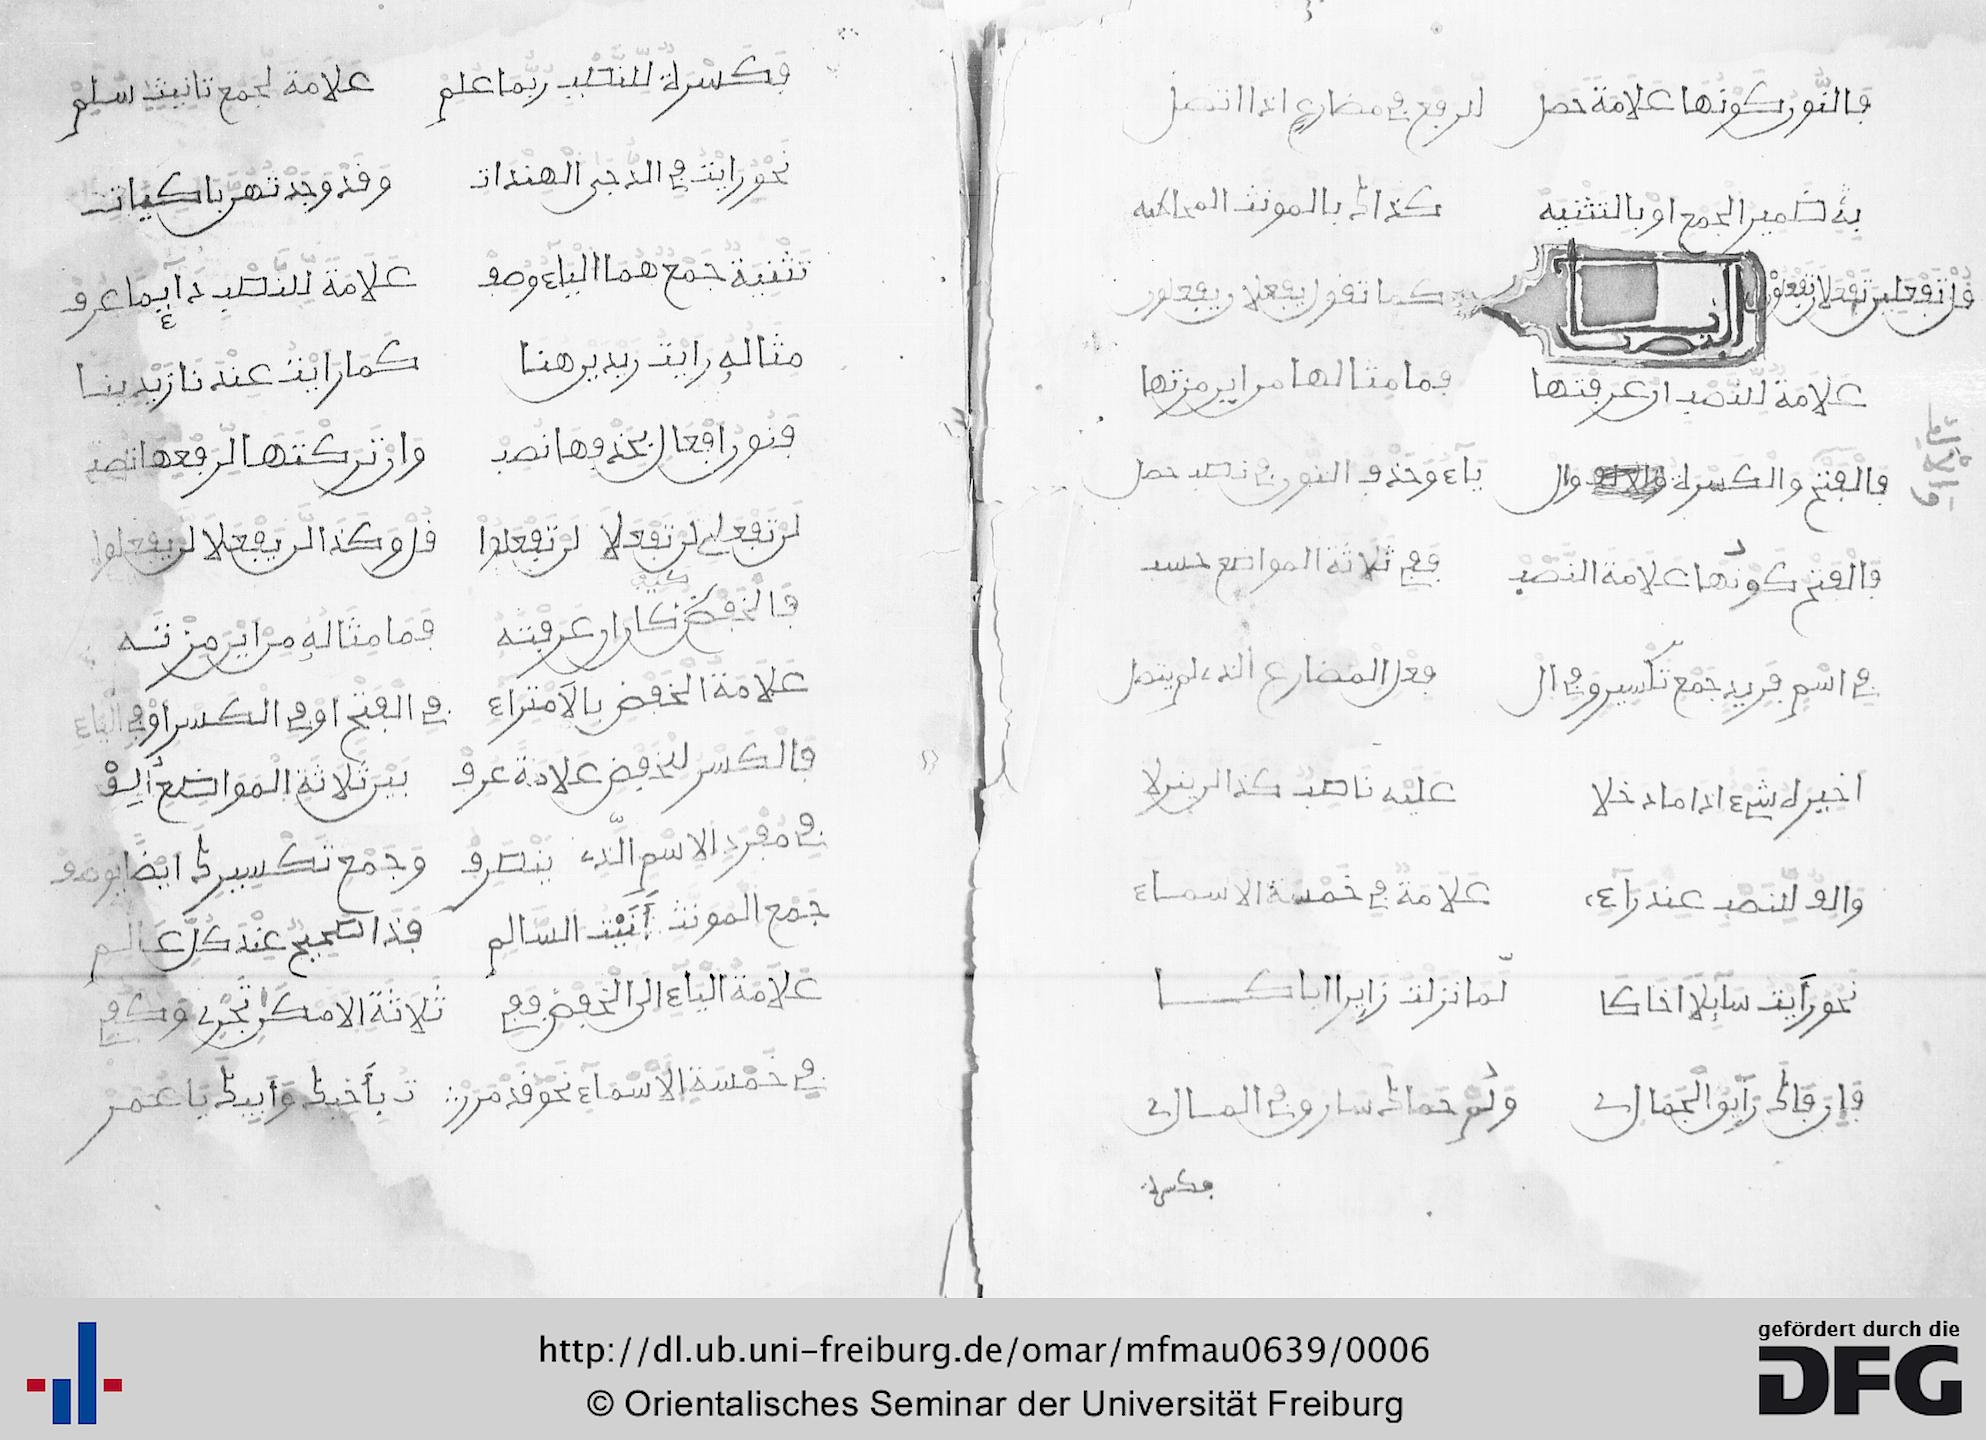 فالنون كونها علامة حصل للرفع في مضارع اذا اتصل
به ضمير الجمع او بالتثنية كذاك بالمونث المخاطبه
قل تفعلين تفعلان تفعلون كما تقول يفعلان يفعلون
النصب
علامة للنصب ان عرفتها فما مثالها من اين مزتها
فالفتح والكسرة وال ياء وحذف النون في نصب حصل
والالف
فالفتح كونها علامة النصب ففي ثلاثة المواضع حسب
في اسم فريد جمع تكسير وفي ال فعل المضارع الذي لم يتصل
اخيره شيء اذا ما دخلا عليه ناصب كذا لن ينزلا
والف للنصب عند راءي علامة في خمسة الاسماء
نحو رأيت سآئلا اخاكا لما نزلت زايرا اباكا
فإن فاك رأبو الجمال ولم حماك سار وفي المال
فكسرة
فكسرة للنصب ربما علم علامة لجمع تانيث سلم
نحو رايت في الدجى الهندات وقد وجدتهن باكيات
تثنية جمع هما الياء وصف علامة للنصب دأبما عرف
مثاله رايت زيدين هنا كما رايت عندنا زيدينا
فنون افعال بحذفها نصب وان تركتها لرفعها نصب
لن تفعلي لن تفعلا لن تفعلوا قل وكذا لن يفعلا لن يفعلوا
فالخفض كان ان عرفته فما مثاله من اين مزته
علامة الخفض بالامتراء في الفتح او في الكسر او في الياء
فالكسر للخفض علامة عرف بين ثلاثة المواضع ألف
في مفرد الاسم الذي ينصرف وجمع تكسيرك ايضا
جمع المونث أتيت السالم فذا الصحيح عند كل عالم
علامة الياء الى الخفض ففي ثلاثة الامكن تجري وكفي
في خمسة الاسماء نحو قد مرر ت بأخيك وأبيك يا عمر
http://dl.ub.uni-freiburg.de/omar/mfmau0639/0006
© Orientalisches Seminar der Universität Freiburg
gefördert durch die
DFG